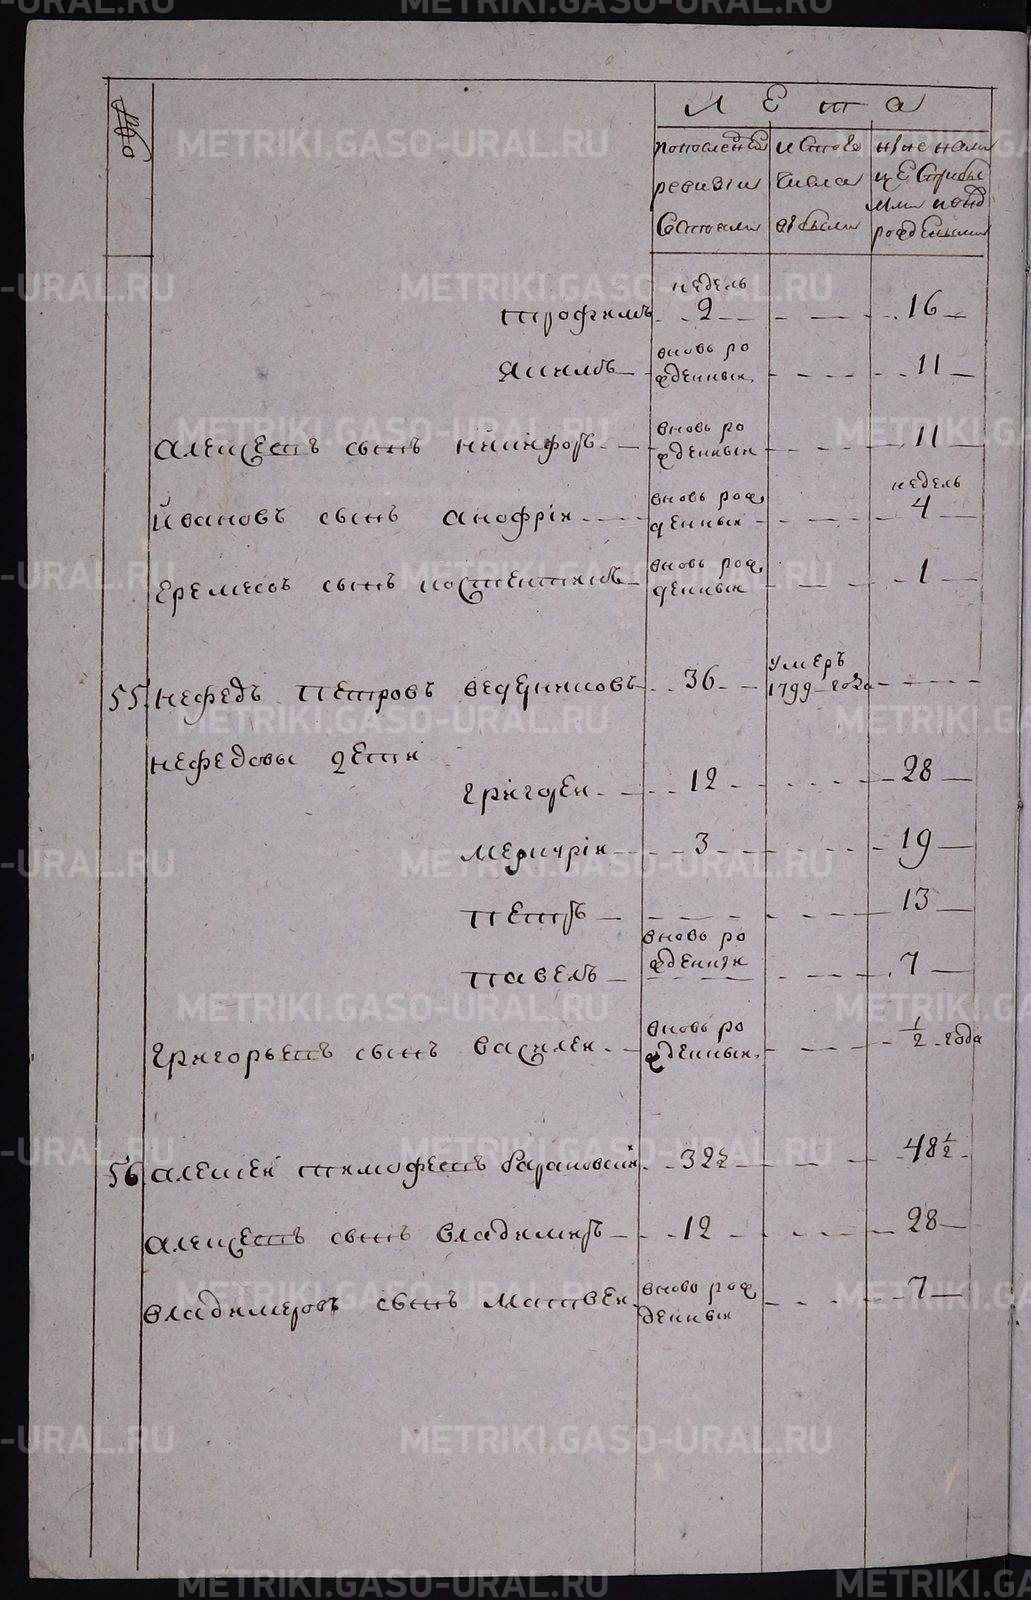 №
Лета
по последней ревизии состояли
из того числа выбыли
ныне на лице с прибылыми и вновь рожденными
Трофимъ недель 2 16
Якимъ вновь рожденный 11
Алексеевъ сынъ Никифоръ вновь рожденный 11
Ивановъ сынъ Анофрiй вновь рожденный недель 4
Еремеевъ сынъ Костентинъ вновь рожденный 1
55 Нефедъ Петровъ Ведерниковъ 36 умеръ 1799 года
Нефедовы дети
Григорей 12 28
3 19
Петръ 13
Павелъ вновь рожденный 7
Григорьевъ сынъ Василей вновь рожденный 1/2 года
56 Алексей Тимофеевъ 32 1/2 48 1/2
Алексеевъ сынъ Владимиръ 12 28
Владимеровъ сынъ Матвей вновь рожденный 7
METRIKI.GASO-URAL.RU